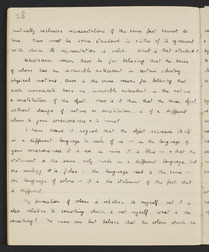 28
mutually exclusive representations of the same fact cannot be
true. There must be some standard in virtue of its agreement
with which the representation is valid. What is that standard?
Whatsoever reason there be for believing that the sense
of colour has an invariable antecedent in certain vibratory
physical motions, there is the same reason for believing that
such movements have an invariable antecedent in the nature
& constitution of the object. How is it then that the same object
without change of nature or constitution, is of a different
colour to your consciousness & to mine?
I have heard it argued that the object expresses itself
in a different language to each of us — in the language of
your consciousness it is red, in mine it is blue — & that the
statement is the same, only made in a different language. But
the analogy is false — the language used is the same —
the language of colour — it is the statement of the fact that
is different.
My sensation of colour is relative to myself, but it is
also relative to something which is not myself. What is this
something? No man can but believe that the colour which he